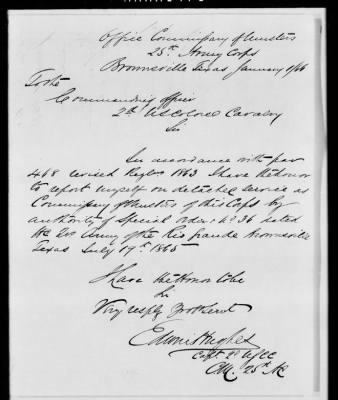 Office Commissary of Musters
25th Army Corps
Brownsville Texas January 1/66
To the
Commanding Officer
2d US Colored Cavalry
Sir
In accordance with par
468 revised Regtns 1863 I have the honor
to report myself on detached service as
Commissary of Musters of this Corps by
authority of Special Orders No 36 dated
Hd Qrs Army of the Rio Grande Brownsville
Texas July 19th 1865
I have the honor to be
Sir
Very respy Yr Obt Servt
Edwin Hughes
Capt 2d USCC
CM. 25th AC